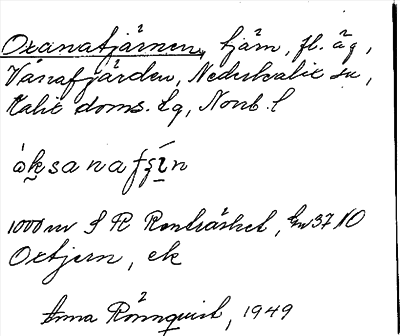 Oxanatjärnen, tjärn, fl. äg,
Vånafjärden, Nederkalix sn,
Kalix doms. lg, Norrb. l
1000 m S R Renträsket, Gn 37 NO
Oxtjern, ek
Anna Rönnquist, 1949